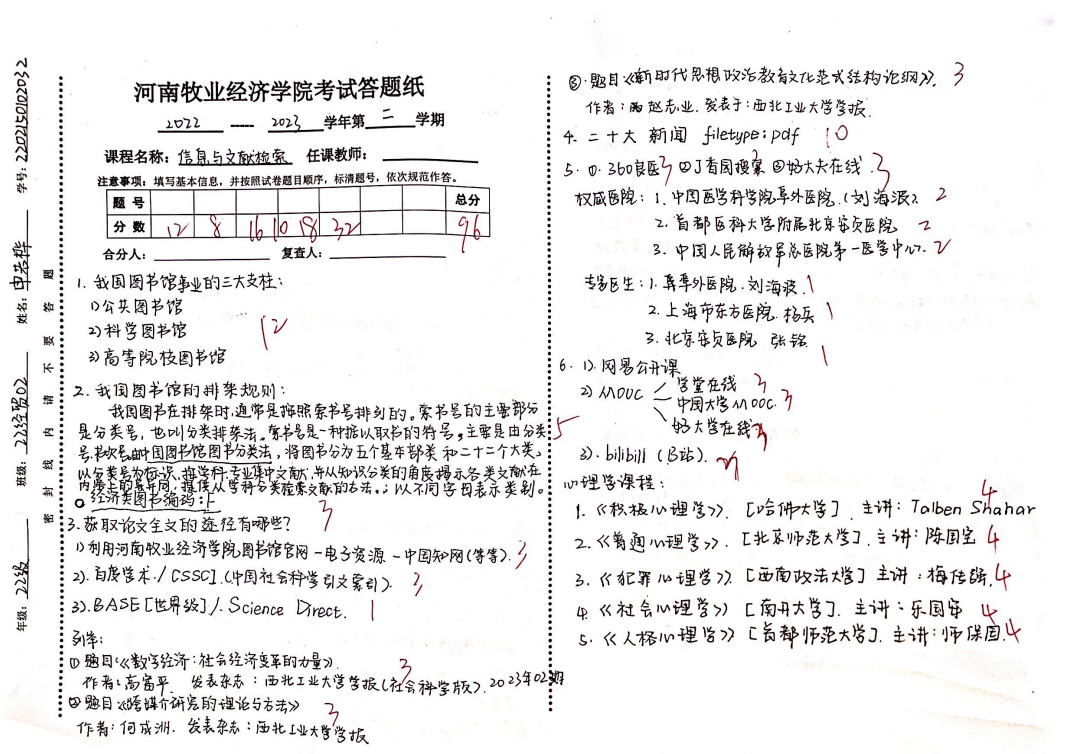 河南牧业经济学院考试答题纸
2022 ---- 2023 学年第 二 学期
课程名称：信息与文献检索 任课教师：
注意事项：填写基本信息，并按照试卷题目顺序，标清题号，依次规范作答。
题 号 总分
分 数 12 8 16 10 18 32 96
合分人： 复查人：
年级：22级 班级：22经贸02 姓名：申若桦 学号：2202150102032
密 封 线 内 请 不 要 答 题
1. 我国图书馆事业的三大支柱：
1)公共图书馆
2)科学图书馆 12
3)高等院校图书馆
2. 我国图书馆的排架规则：
我国图书在排架时，通常是按照索书号排列的。索书号的主要部分
是分类号，也叫分类排架法。索书号是一种据以取书的符号。主要是由分类 5
号、书次号。由中国图书馆图书分类法，将图书分为五个基本部类和二十二个大类。
以分类号为标识，按学科、专业集中文献，并从知识分类的角度揭示各类文献在
内容上的异同，提供从学科分类检索文献的方法。；以不同字母表示类别。
经济类图书编码：F 3
3. 获取论文全文的途径有哪些？
1)利用河南牧业经济学院图书馆官网-电子资源-中国知网(等等). 3
2). 百度学术./ CSSCI.(中国社会科学引文索引). 3
3). BASE[世界级]/. Science Direct. 1
列举：
① 题目：《数字经济：社会经济变革的力量》. 3
作者：高富平. 发表杂志：西北工业大学学报(社会科学版). 2023年02期
② 题目《跨媒介研究的理论与方法》 3
作者：何成洲. 发表杂志：西北工业大学学报
③. 题目《新时代思想政治教育文化范式结构论纲》. 3
作者：赵志业. 发表于：西北工业大学学报.
4. 二十大 新闻 filetype:pdf 10
5. ①. 360良医 3 ②丁香园搜索 3 ③好大夫在线. 3
权威医院：1. 中国医学科学院阜外医院.(刘海波). 2
2. 首都医科大学附属北京安贞医院 2
3. 中国人民解放军总医院第一医学中心. 2
专家医生：1. 阜外医院. 刘海波. 1
2. 上海市东方医院. 杨兵 1
3. 北京安贞医院 张铭 1
6. 1). 网易公开课
2) MOOC 学堂在线 3
中国大学MOOC. 3
好大学在线 3
3). bilibili (B站).
心理学课程：
1. 《积极心理学》. [哈佛大学]. 主讲：Talben Shahar 4
2. 《普通心理学》. [北京师范大学]. 主讲：陈国宝 4
3. 《犯罪心理学》. [西南政法大学] 主讲：梅传强. 4
4. 《社会心理学》 [南开大学]. 主讲：乐国安 4
5. 《人格心理学》 [首都师范大学]. 主讲：师保国. 4